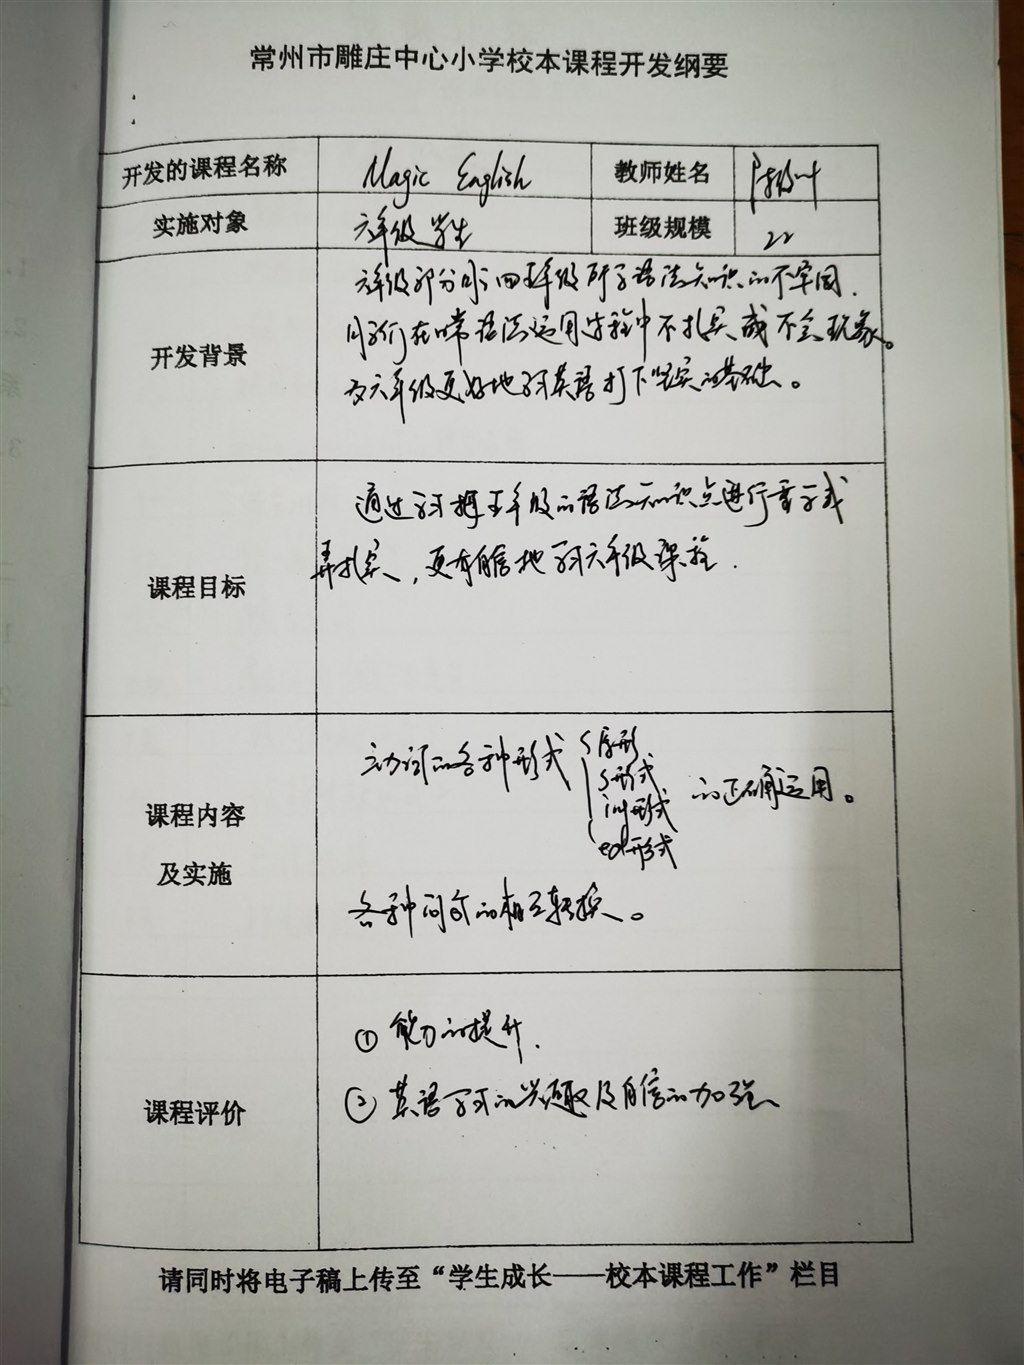 常州市雕庄中心小学校本课程开发纲要
开发的课程名称 Magic English 教师姓名 陈
实施对象 六年级学生 班级规模 22
开发背景
六年级部分同学四五年级所学语法知识的不牢固.
同学们在日常语法运用过程中不扎实或不会现象。
为六年级更好地学习英语打下坚实的基础。
课程目标
通过学习把五年级的语法知识点进行
弄扎实,更有自信地学习六年级课程.
课程内容
及实施
动词的各种形式 原形
s形式
ing形式 的正确运用。
ed形式
各种句式的相互转换。
课程评价
① 能力的提升.
② 英语学习的兴趣及自信的加强
请同时将电子稿上传至“学生成长——校本课程工作”栏目